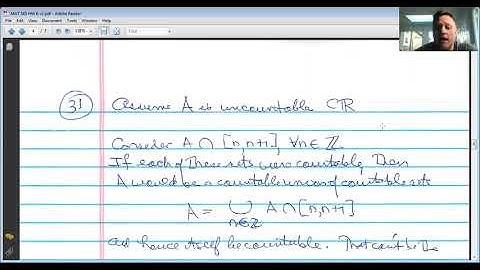 MAT 513 HW 6 v2.pdf - Adobe Reader
File Edit View Document Tools Window Help
31 Assume A is uncountable ⊂ ℝ
Consider A ∩ [n, n+1], ∀n ∈ ℤ
If each of these sets were countable, then
A would be a countable union of countable sets
A = ∪ A ∩ [n, n+1]
n∈ℤ
and hence itself be countable. That can't be the